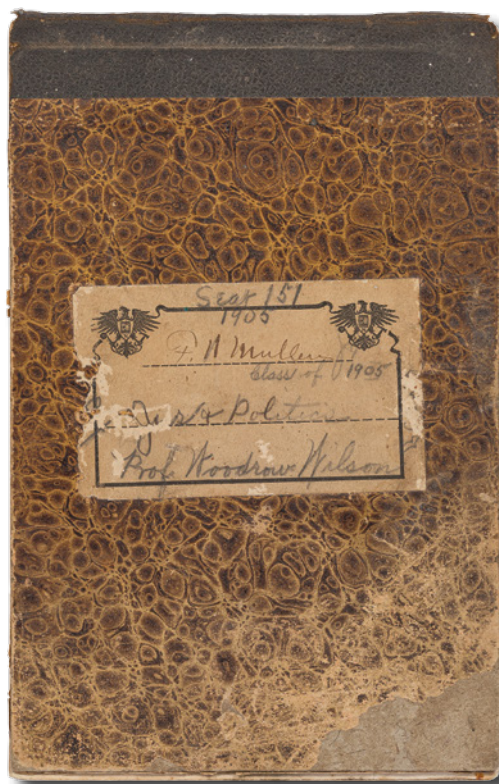 Seat 151
1905
P. A Mullen Jr
class of 1905
Jur & Politics
Prof. Woodrow Wilson